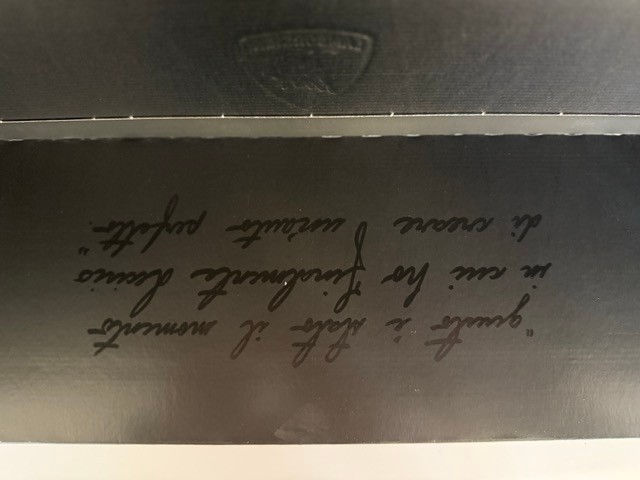 "questo è stato il momento
in cui ho finalmente deciso
di creare un'auto perfetta."